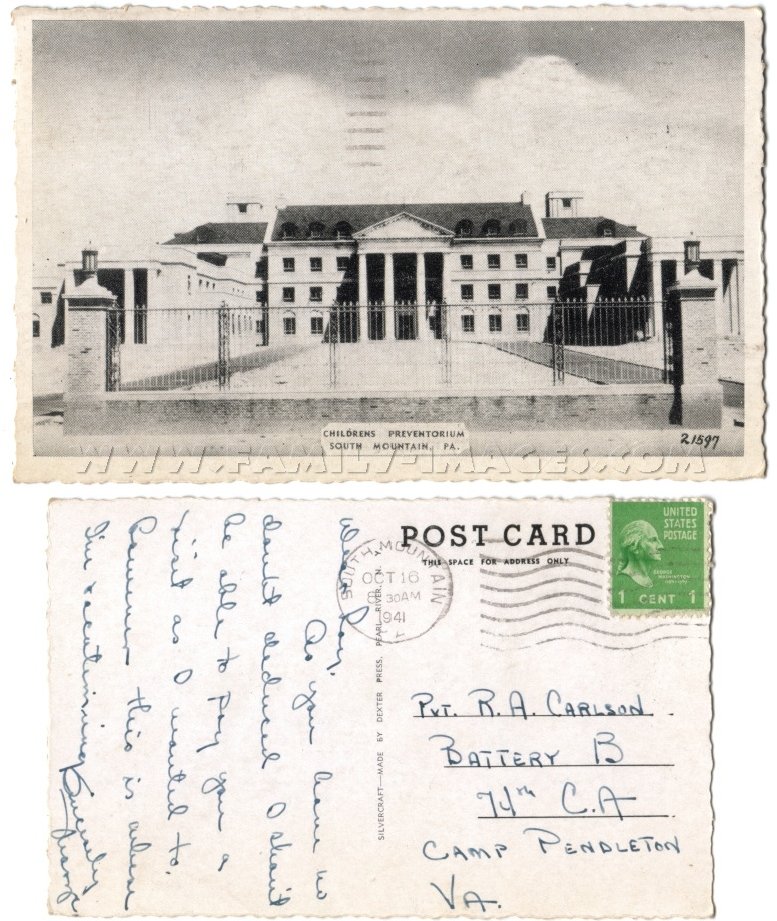 CHILDRENS PREVENTORIUM
SOUTH MOUNTAIN, PA.
21597
WWW.FAMILY-IMAGES.COM
POST CARD
THIS SPACE FOR ADDRESS ONLY
SOUTH MOUNTAIN
OCT 16
30AM
1941
UNITED
STATES
POSTAGE
GEORGE
WASHINGTON
1 CENT 1
SILVERCRAFT—MADE BY DEXTER PRESS, PEARL RIVER, N. Y.
Dear Ray,
As you have no
doubt deduced I shan't
be able to pay you a
visit as I wanted to.
However this is where
I'm vacationing
Sincerely
PVT. R. A. CARLSON
BATTERY B
74th C.A
CAMP PENDLETON
VA.